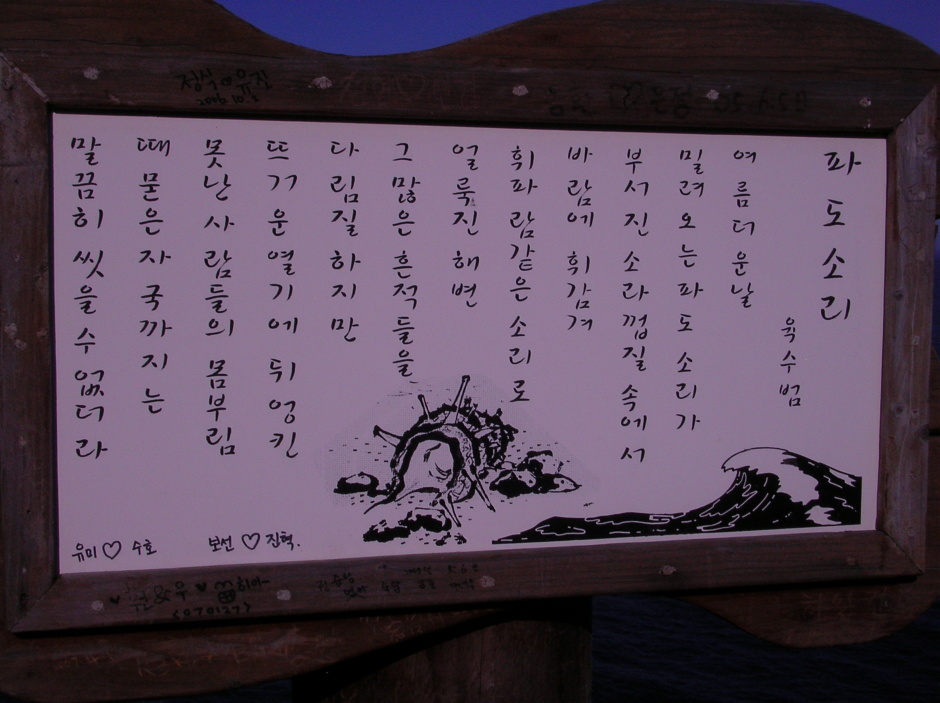 파도소리
육수범
여름더운날
밀려오는파도소리가
부서진소라껍질속에서
바람에 휘감겨
휘파람같은 소리로
얼룩진 해변
그많은흔적들을
다림질하지만
뜨거운열기에 뒤엉킨
못난사람들의 몸부림
때묻은자국까지는
말끔히 씻을수 없더라
유미♡수호
보선♡진혁.
정식♡유진
2006 10.2
<070127>